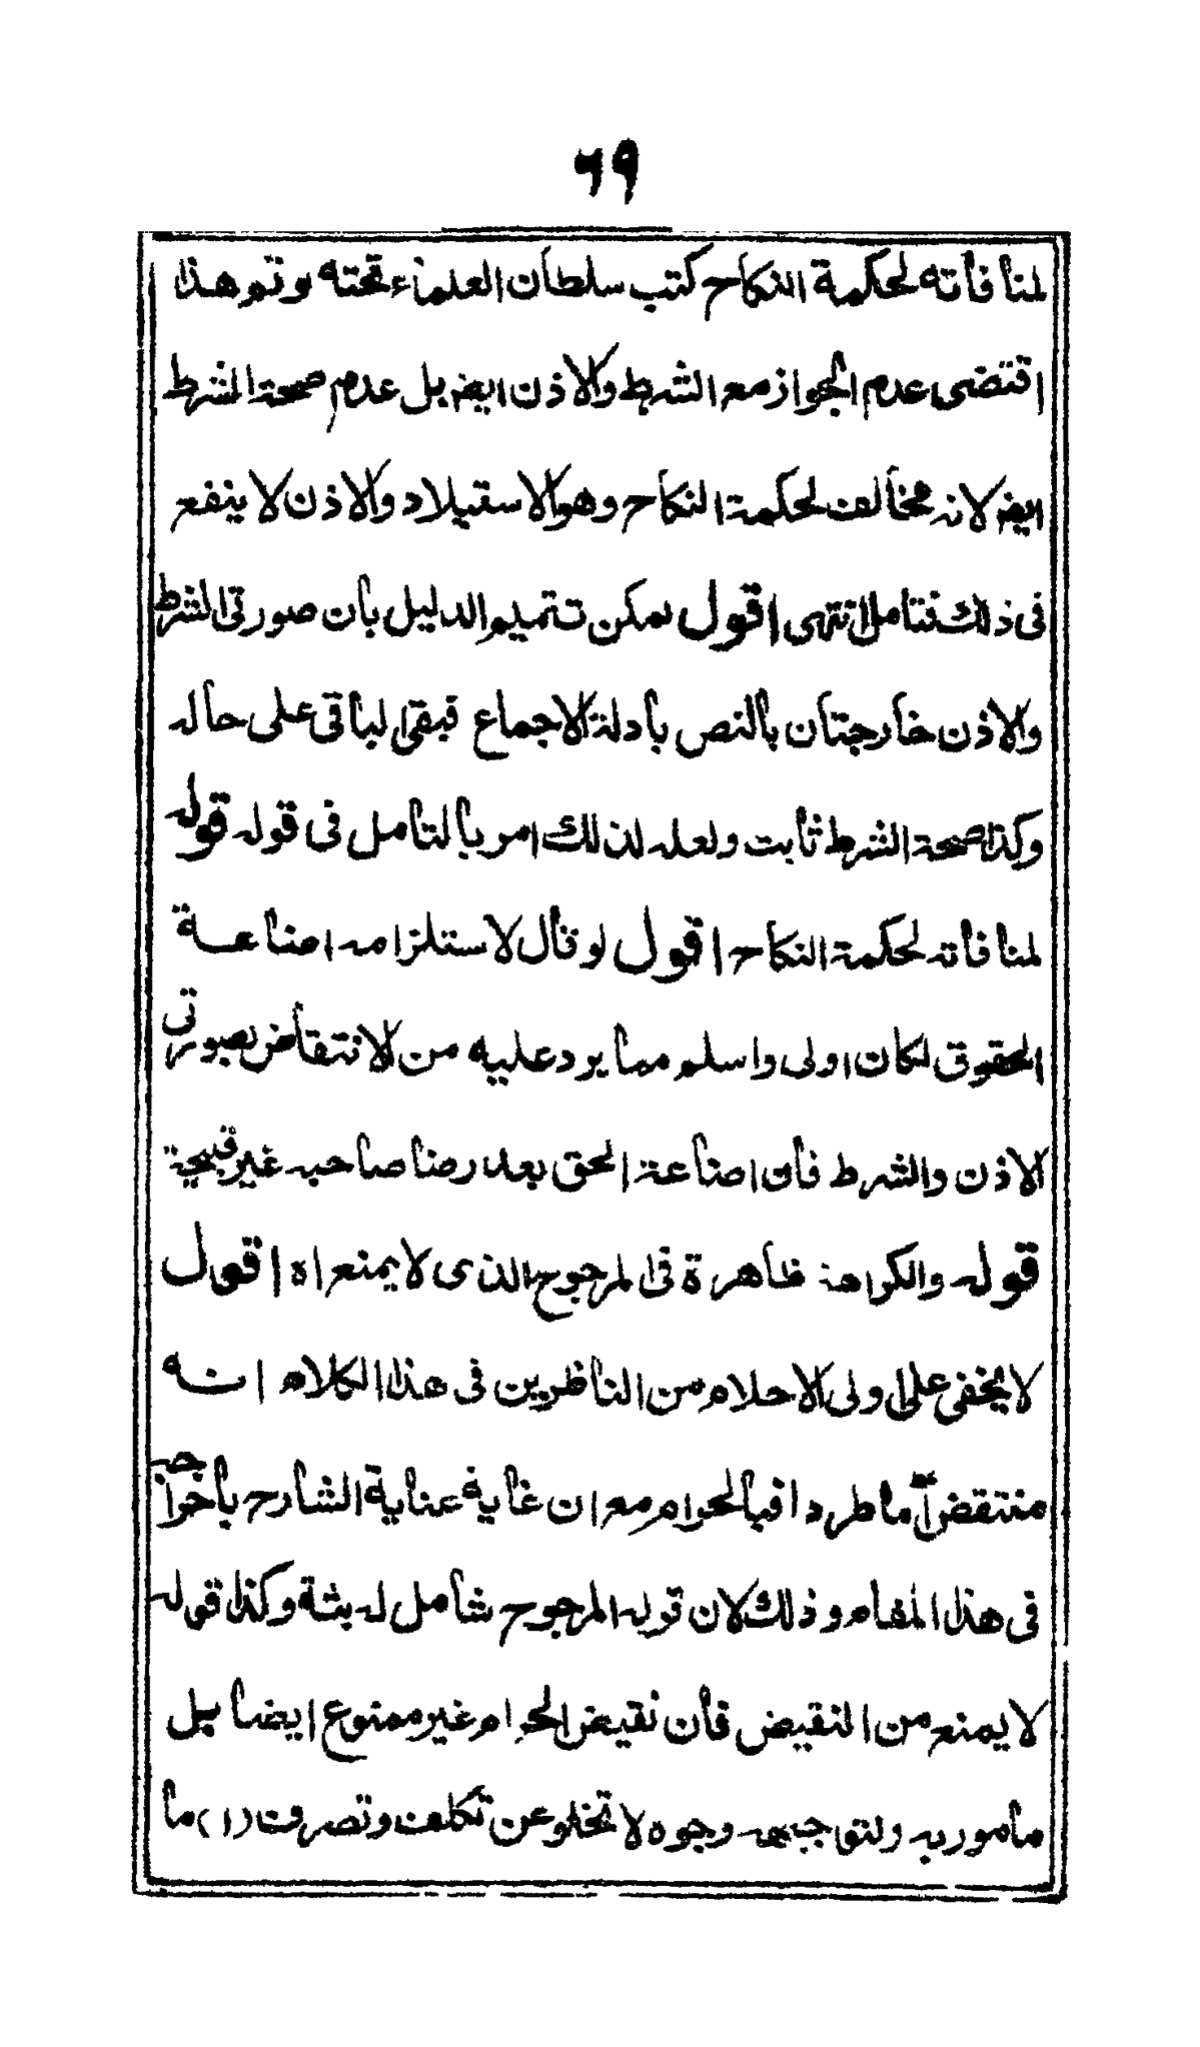 ٦٩
لمنافاته لحكمة النكاح كتب سلطان العلماء تحته لو تم هذا
اقتضى عدم الجواز مع الشرط والاذن ايضه بل عدم صحة الشرط
ايضه لانه مخالف لحكمة النكاح وهو الاستيلاد والاذن لا ينفع
فى ذلك فتامل انتهى اقول يمكن تتميم الدليل بان صورتى الشرط
والاذن خارجتان بالنص بادلة الاجماع فبقى الباقى على حاله
وكذا صحة الشرط ثابت ولعله لذلك امر بالتامل فى قوله قوله
لمنافاته لحكمة النكاح اقول لو قال لاستلزامه اضاعة
الحقوق لكان اولى واسلم مما يرد عليه من الانتقاض بصورتى
الاذن والشرط فان اضاعة الحق بعد رضا صاحبه غير قبيحة
قوله والكراهة ظاهرة فى المرجوح الذى لا يمنع اه اقول
لا يخفى على اولى الاحلام من الناظرين فى هذا الكلام انه
منتقض اما طردا فبالحرام مع ان غاية عناية الشارح باخراجه
فى هذا المقام وذلك لان قوله المرجوح شامل له بتة وكذا قوله
لا يمنع من النقيض فان نقيض الحرام غير ممنوع ايضا بل
مامور به ولتوجيهه وجوه لا تخلو عن تكلف وتصرف (١) ما